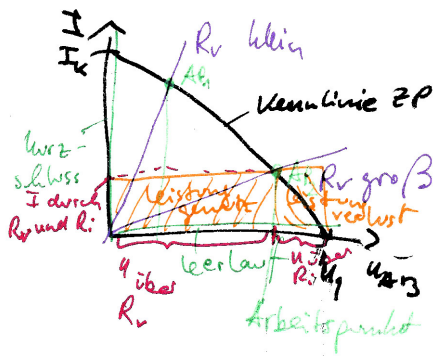 I
I_K
R_V klein
AP_1
Kennlinie ZP
kurz-
schluss
I durch
R_V und R_i
Leistung
genutzt
AP_2
R_V groß
Leistung
verlust
U über
R_V
Leerlauf
U über
R_i
U_q
U_AB
Arbeitspunkt